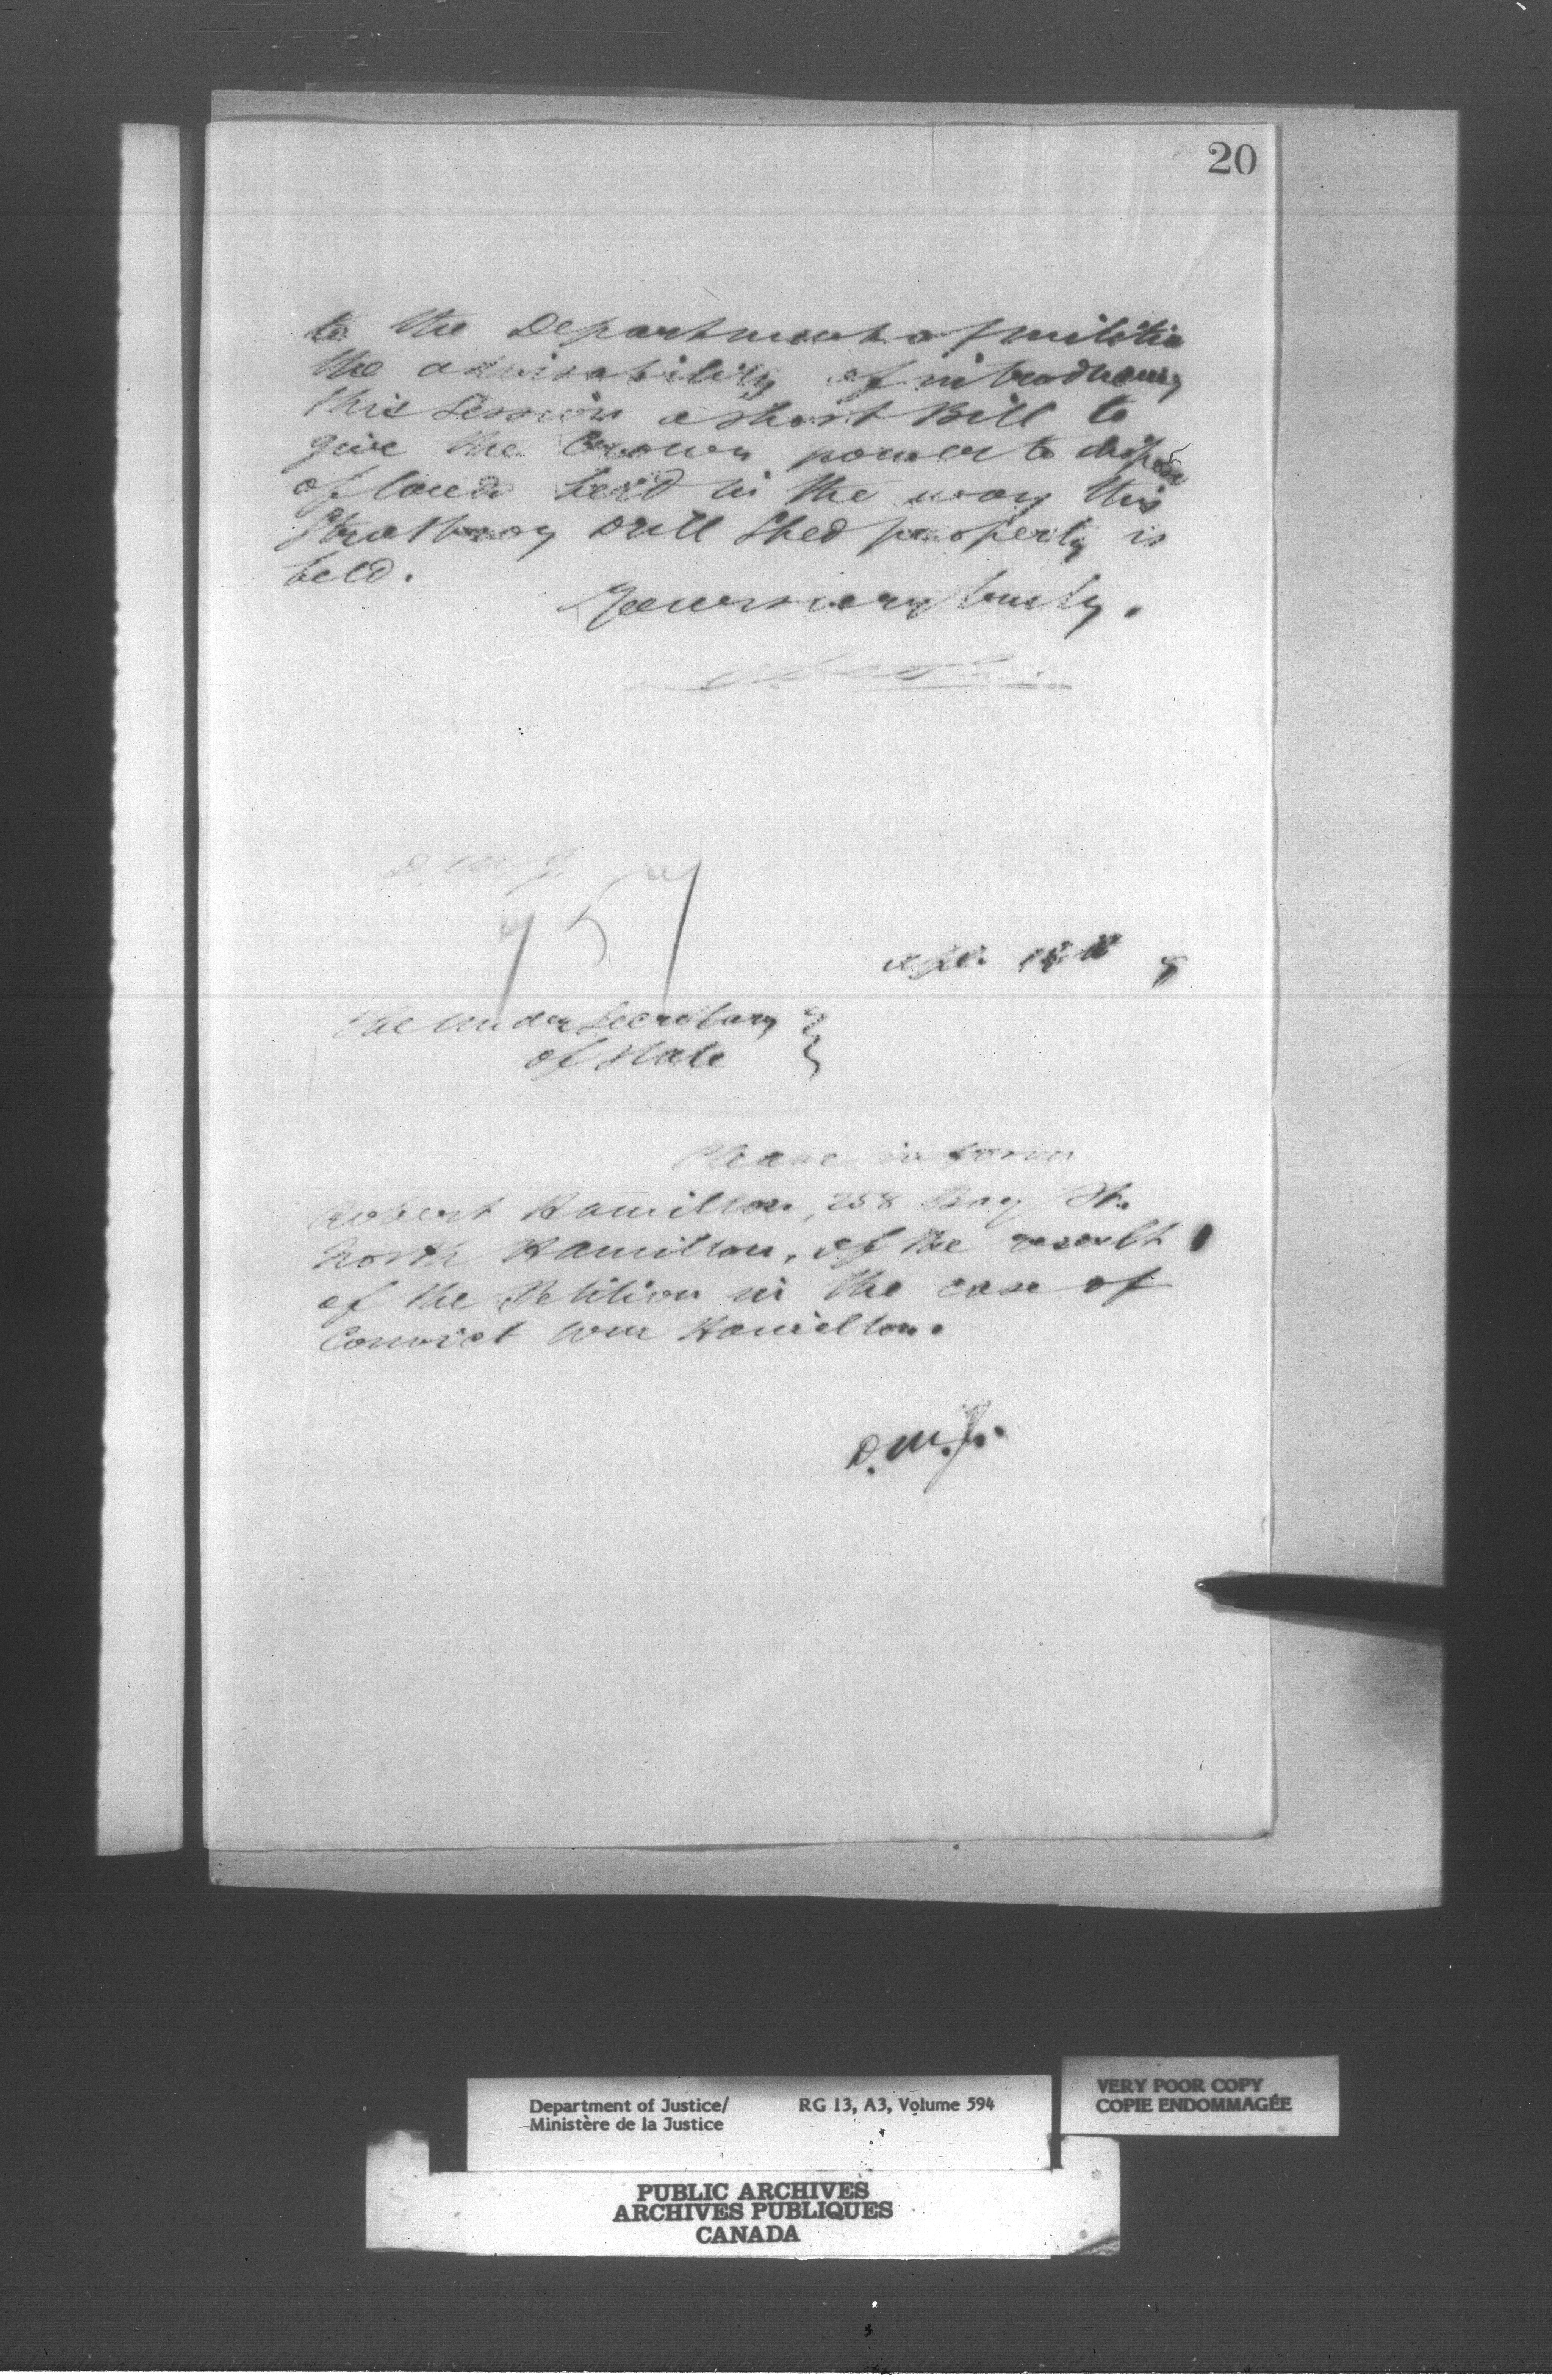 20
to the Department of Militia
the advisability of introducing
this Session a short Bill to
give the Crown power to dispose
of lands held in the way this
Strathroy Drill Shed property is
held.
Yours very truly.
D. M. J.
757
Apl. 8
The Under Secretary
of State
Please inform
Robert Hamilton, 258 Bay St.
North Hamilton, of the result
of the Petition in the case of
Convict Wm Hamilton.
D. M. J.
Department of Justice/ RG 13, A3, Volume 594
Ministère de la Justice
VERY POOR COPY
COPIE ENDOMMAGÉE
PUBLIC ARCHIVES
ARCHIVES PUBLIQUES
CANADA